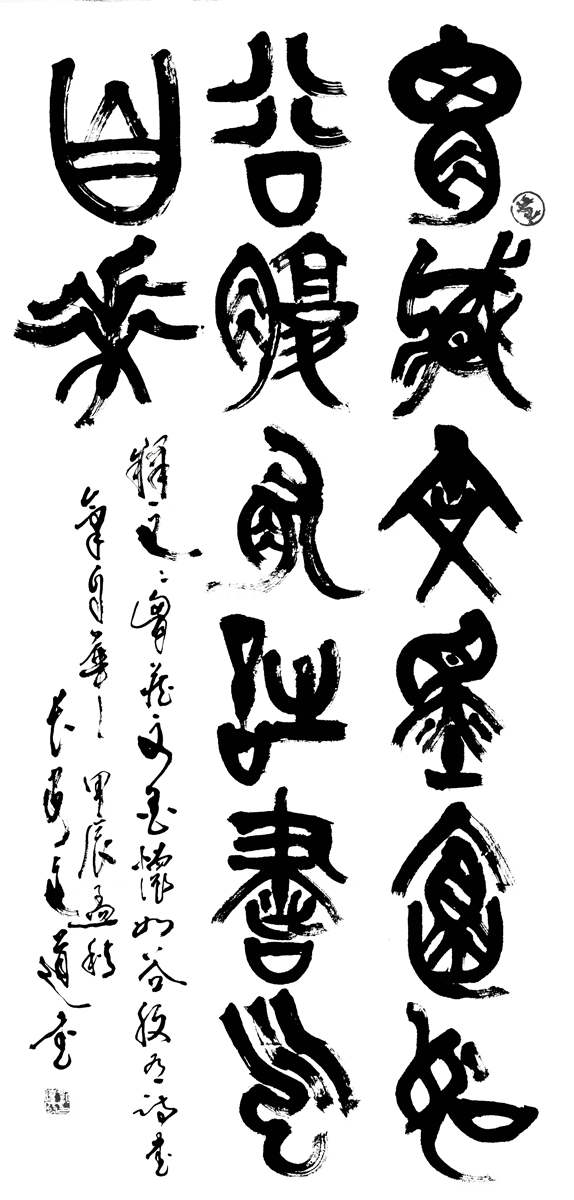 胸藏文墨虚如
谷腹有诗书气
自华
释文：胸藏文墨怀如谷腹有诗书
气自华 甲辰孟秋